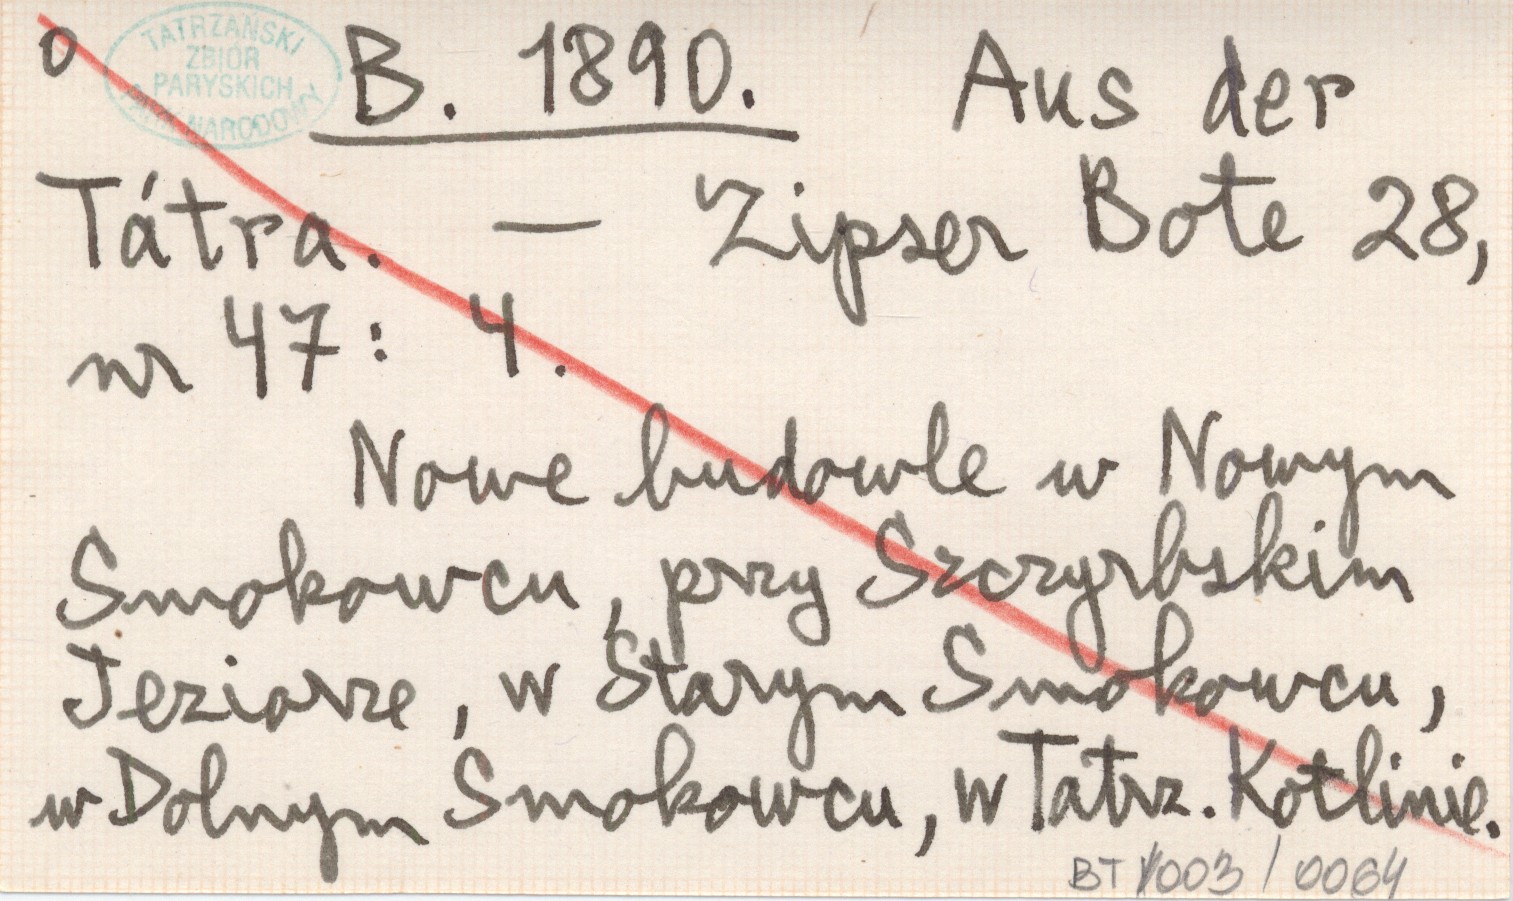 o
TATRZAŃSKI
ZBIÓR
PARYSKICH
PARK NARODOWY
B. 1890. Aus der
Tátra. — Zipser Bote 28,
nr 47: 4.
Nowe budowle w Nowym
Smokowcu, przy Szczyrbskim
Jeziorze, w Starym Smokowcu,
w Dolnym Smokowcu, w Tatrz. Kotlinie.
BT 1003 / 0064